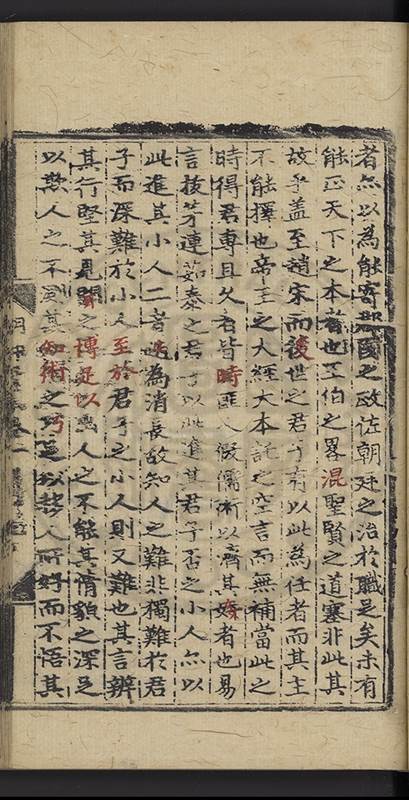 者亦以為能寄邦國之政佐朝廷之治於職足矣未有
能正天下之本者也王伯之畧混聖賢之道塞非此其
故乎盖至趙宋而後世之君子有以此為任者而其主
不能擇也帝王之大經大本託之空言而無補當此之
時得君專且久者皆時匪人假儒術以濟其奸者也易
言拔茅連茹泰之君子以此進其君子否之小人亦以
此進其小人二者迭為消長故知人之難非獨難於君
子而深難於小人至於君子之小人則又難也其言辨
其行堅其見聞之博足以幽人之不能其情貌之深足
以欺人之不測其知術之巧足以禁人所好而不悟其